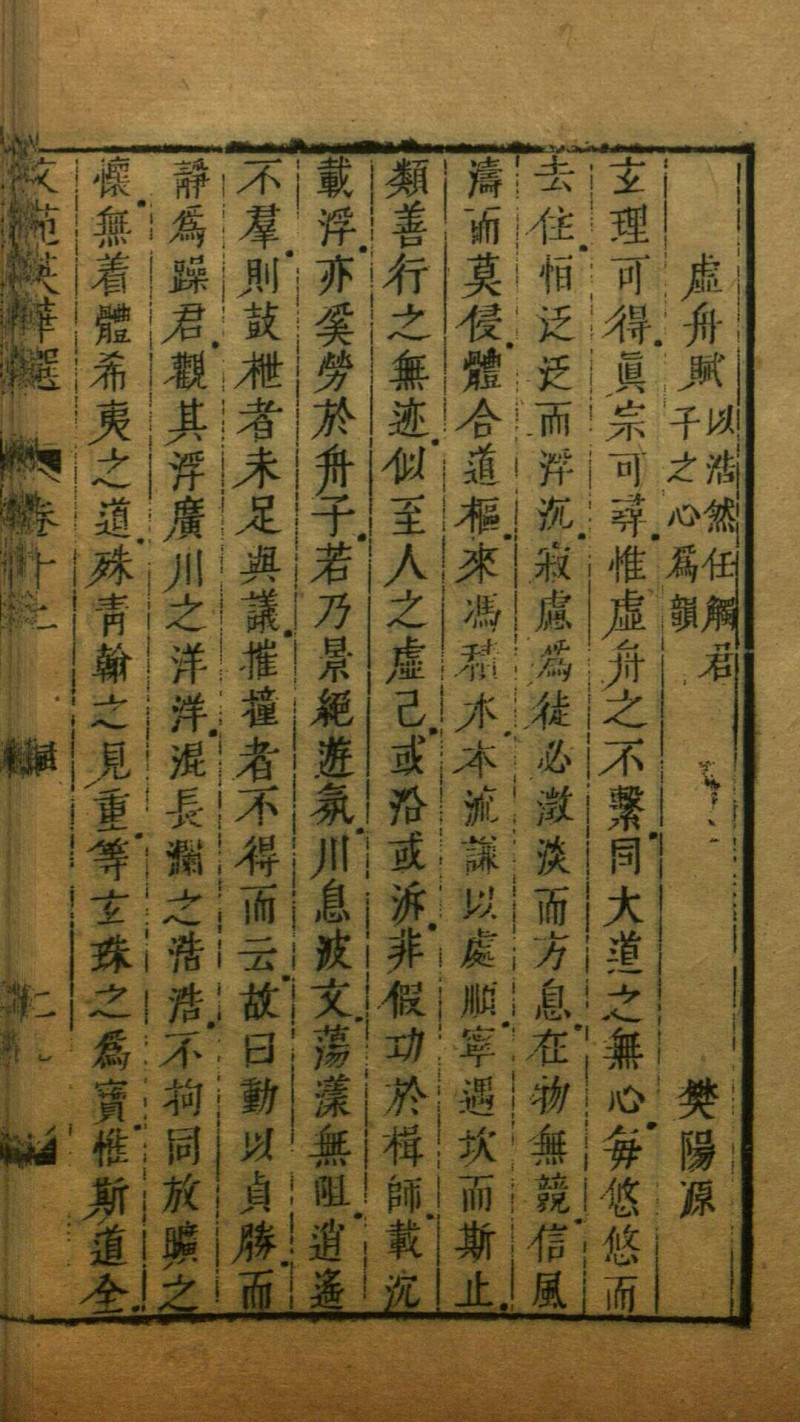 虛舟賦 以浩然任觸君子之心爲韻 樊陽源
玄理可得眞宗可尋惟虛舟之不繫同大道之無心每悠悠而
去住怕泛泛而浮沉寂慮爲徒必澂淡而方息在物無競信風
濤而莫侵體合道樞來馮積水本流謙以處順寧遇坎而斯止
類善行之無迹似至人之虛己或沿或泝非假功於楫師載沉
載浮亦奚勞於舟子若乃景絕遊氛川息波文蕩漾無阻逍遙
不羣則鼓枻者未足與議摧撞者不得而云故曰動以貞勝而
靜爲躁君觀其浮廣川之洋洋混長瀾之浩浩不拘同放曠之
懷無着體希夷之道殊靑翰之見重等玄珠之爲寳惟斯道全
文苑英華選 卷十二 賦 二